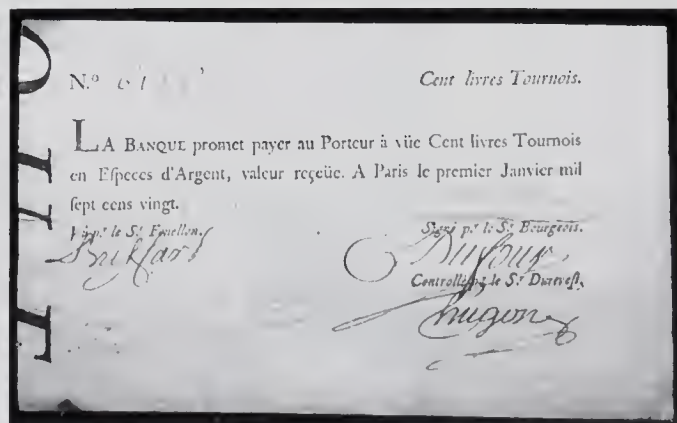 N.º
Cent livres Tournois.
LA BANQUE promet payer au Porteur à vüe Cent livres Tournois
en Eſpeces d'Argent, valeur reçeüe. A Paris le premier Janvier mil
ſept cens vingt.
Vû p.r le S.r Fenellon. Signé p.r le S.r Bourgeois.
Dufour
Controllé p.r le S.r Dureveſt.